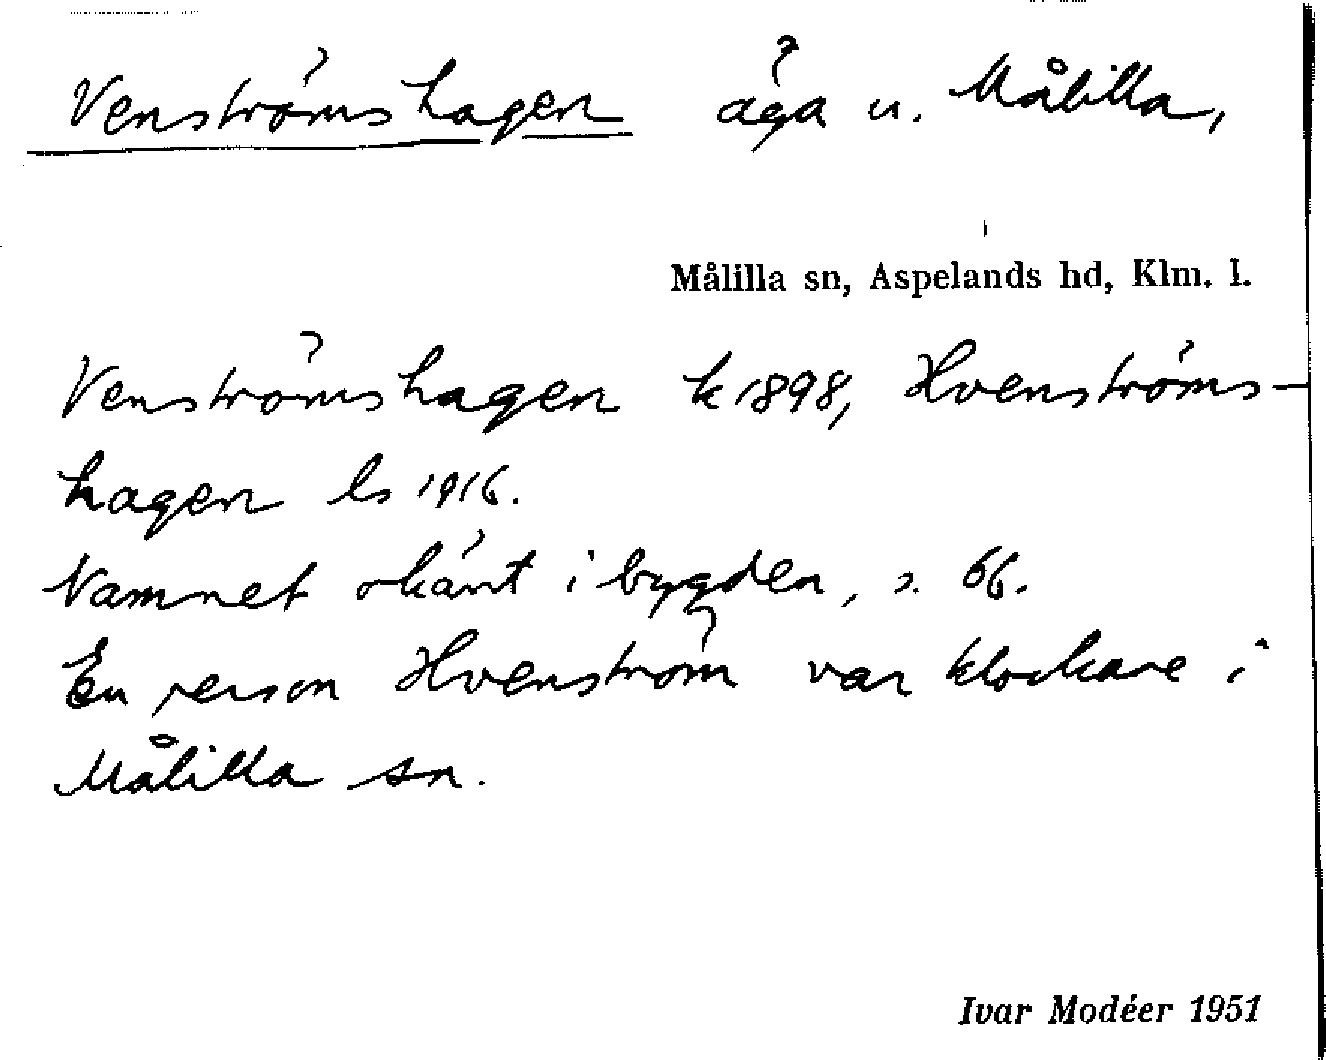 Venströmshagen äga u. Målilla,
Målilla sn, Aspelands hd, Klm. l.
Venströmshagen k 1898, Hvenströms-
hagen ls 1916.
Namnet okänt i bygden, s. 66.
En person Hvenström var klockare i
Målilla sn.
Ivar Modéer 1951